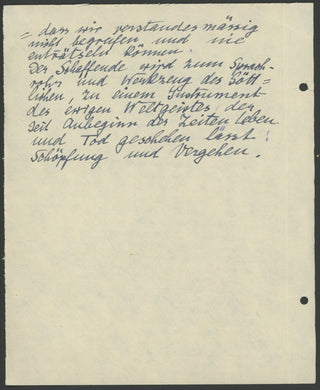 = dass wir verstandesmässig
nicht begreifen und nie
enträtseln können.
Der Schaffende wird zum Sprach-
rohr und Werkzeug des Gött=
lichen, zu einem Instrument
des ewigen Weltgeistes: der
seit Anbeginn der Zeiten Leben
und Tod geschehen lässt:
Schöpfung und Vergehen.